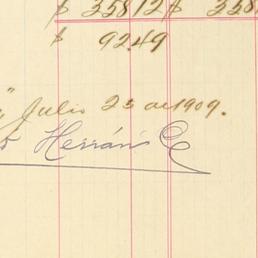 $ 358 12 $ 358
$ 92.49
" Julio 23 de 1909.
Herrán